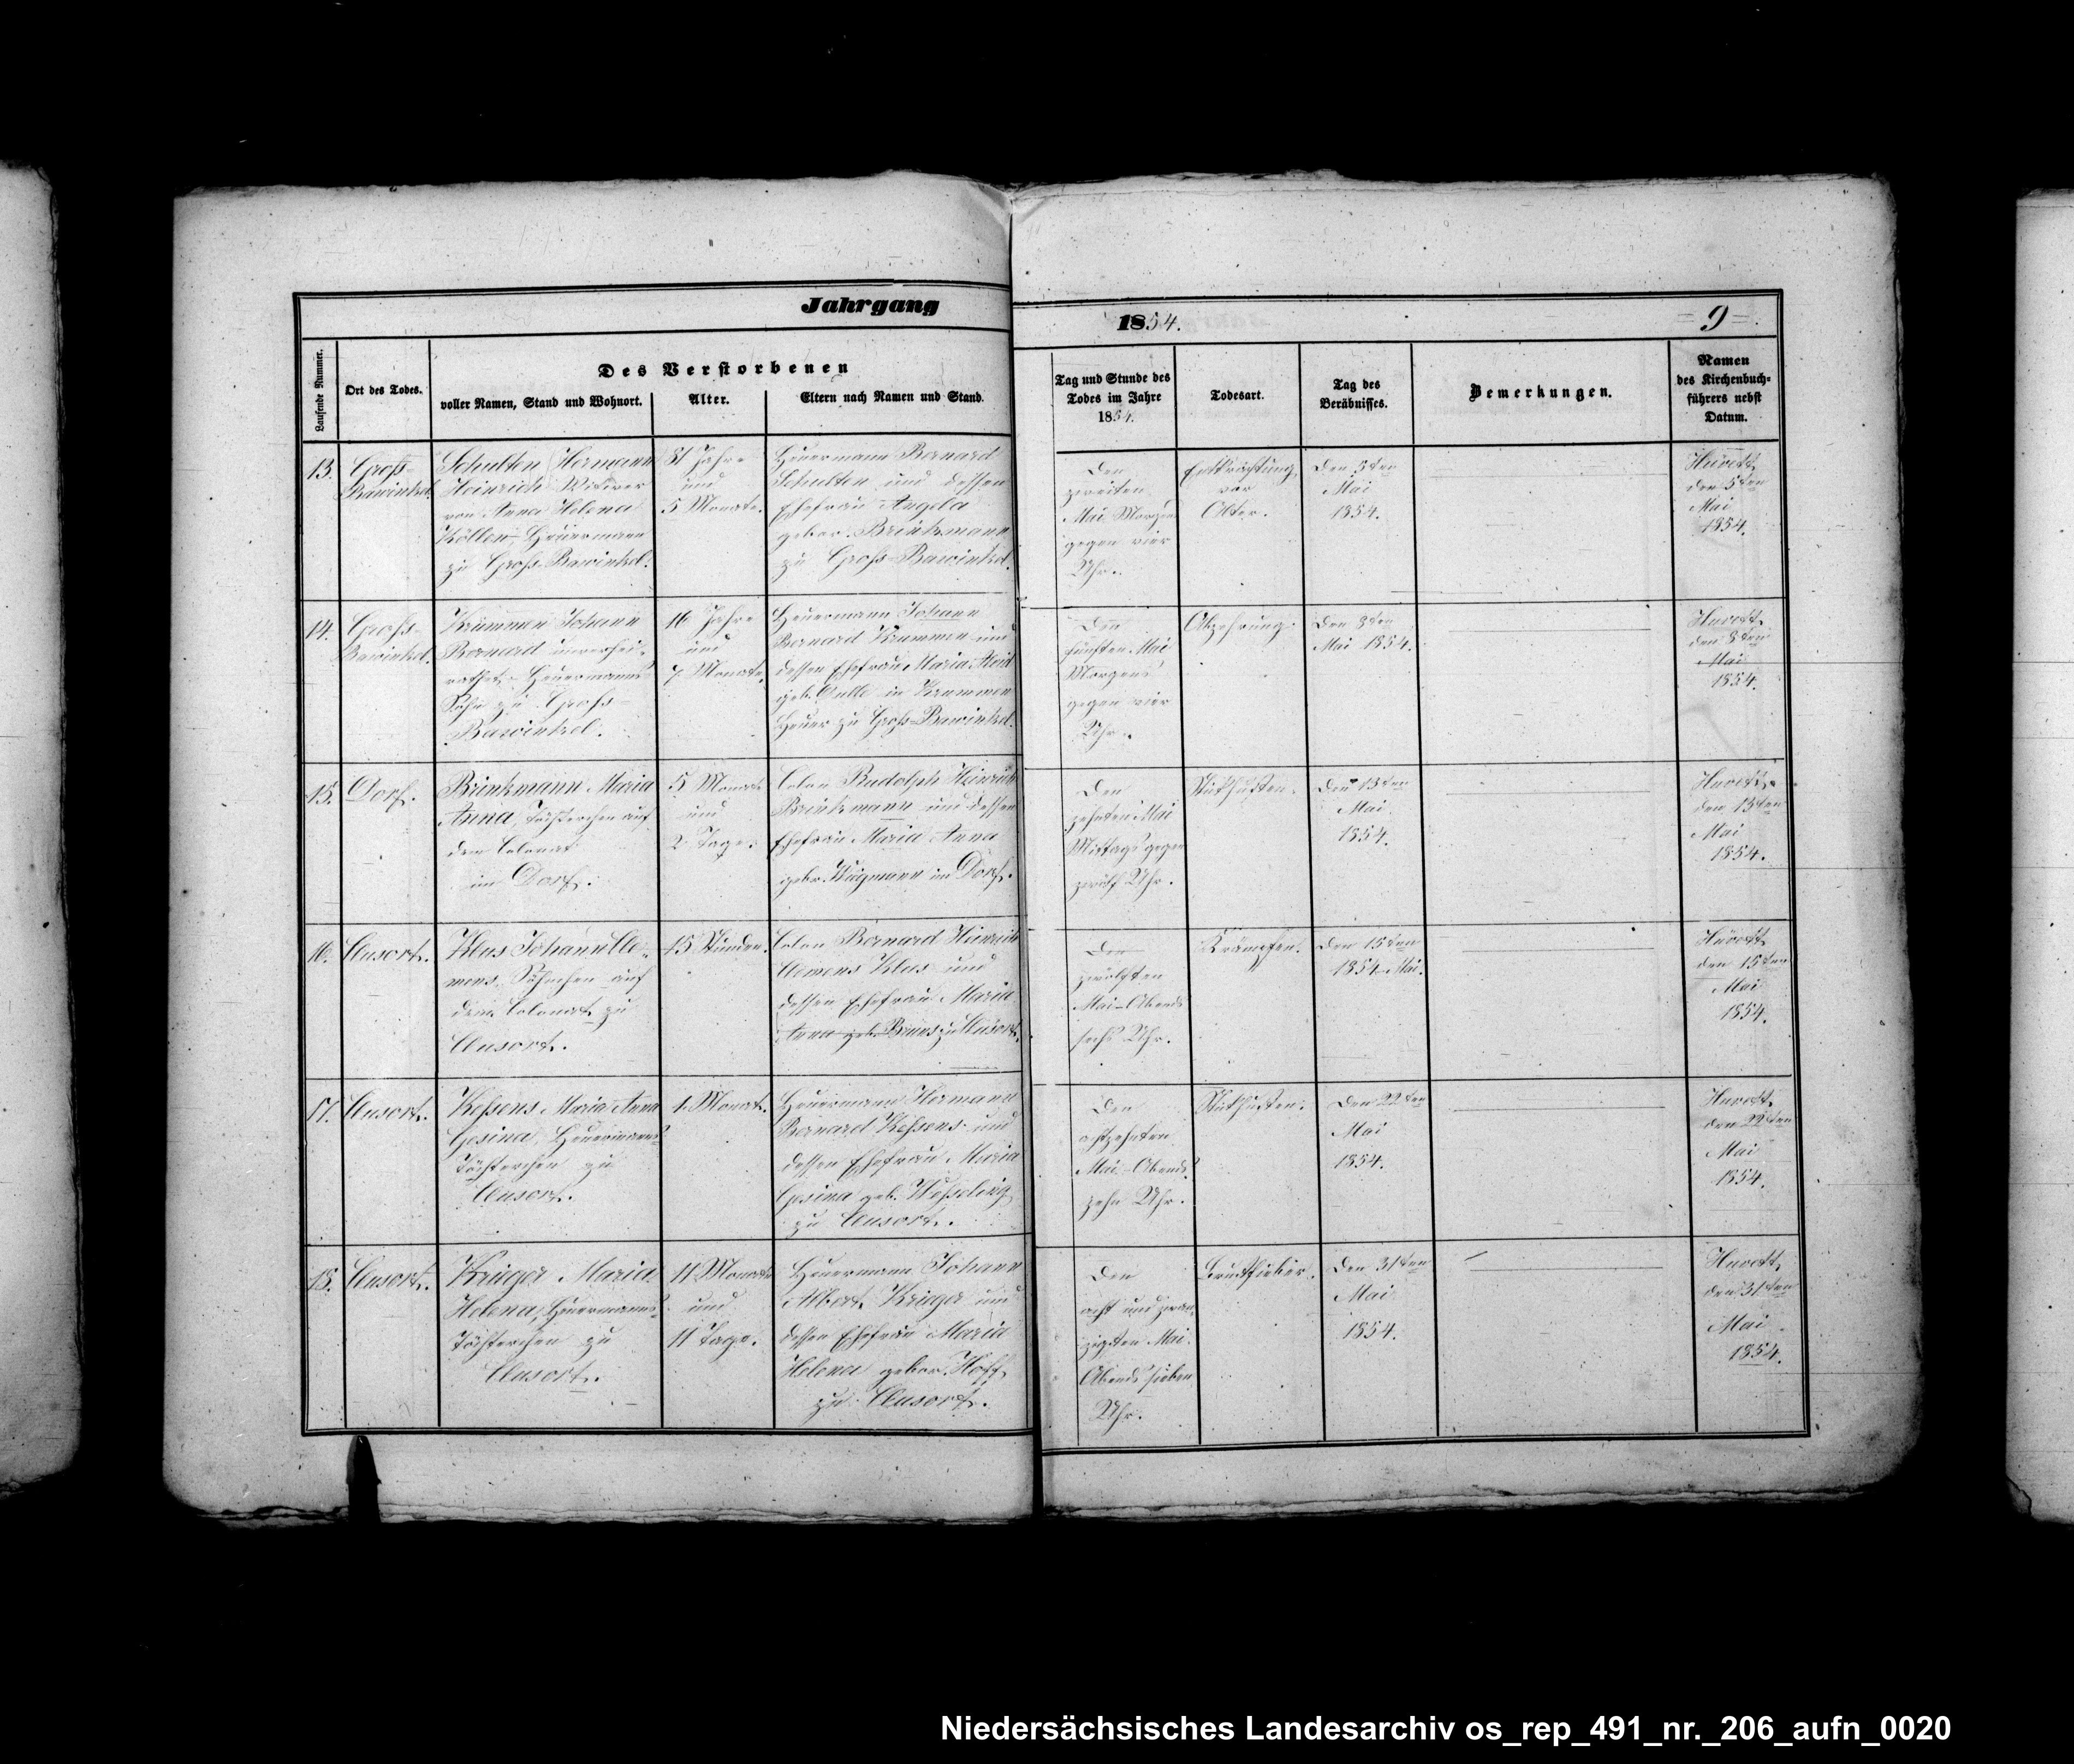 Jahrgang
1854.
= 9 =.
Laufende Nummer.
Ort des Todes.
Des Verstorbenen
voller Namen, Stand und Wohnort.
Alter.
Eltern nach Namen und Stand.
Tag und Stunde des
Todes im Jahre
1854.
Todesart.
Tag des
Beräbnisses.
Bemerkungen.
Namen
des Kirchenbuch-
führers nebst
Datum.
13.
Groß-
Bawinkel.
Schulten Hermann
Heinrich Witwer
von Anna Helena
Köllen, Heuermann
zu Groß-Bawinkel.
81 Jahre
und
5 Monate.
Heuermann Bernard
Schulten und dessen
Ehefrau Angela
gebor. Brinkmann
zu Groß-Bawinkel.
Den
zweiten
Mai Morgens
gegen vier
Uhr.
Entkräftung
vor
Alter.
Den 5ten
Mai
1854.
den 5ten
Mai
1854.
14.
Groß-
Bawinkel.
Krümmen Johann
Bernard unverhei-
rathet, Heuermanns
Sohn zu Groß-
Bawinkel.
16 Jahre
und
7 Monate.
Heuermann Johann
Bernard Krummen und
dessen Ehefrau Maria Aleid
geb. in Krummen
Heuer zu Groß-Bawinkel.
Den
fünften Mai
Morgens
gegen vier
Uhr.
Abzehrung.
Den 8ten
Mai 1854.
den 8ten
Mai
1854.
15.
Dorf.
Brinkmann Maria
Anna, Töchterchen auf
dem Colonat
im Dorf.
5 Monate
und
2 Tage.
Colon Rudolph Heinrich
Brinkmann und dessen
Ehefrau Maria Anna
gebr. im Dorf.
Den
zehnten Mai
Mittags gegen
zwölf Uhr.
Stickhusten.
Den 13ten
Mai
1854.
den 13ten
Mai
1854.
16.
Clusort.
Klus Johann Cle-
mens, Söhnchen auf
dem Colonat zu
Clusort.
15 Stunden.
Colon Bernard Heinrich
Clemens Klus und
dessen Ehefrau Maria
Anna geb. Bruns zu Clusort.
Den
zwölften
Mai Abends
sechs Uhr.
Krämpfen.
Den 15ten
1854 Mai.
den 15ten
Mai
1854.
17.
Clusort.
Keßens Maria Anna
Gesina, Heuermanns
Töchterchen zu
Clusort.
1 Monat.
Heuermann Hermann
Bernard Keßens und
dessen Ehefrau Maria
Gesina geb. Weßeling
zu Clusort.
Den
achtzehnten
Mai Abends
zehn Uhr.
Stickhusten.
Den 22ten
Mai
1854.
den 22ten
Mai
1854.
18.
Clusort.
Krieger Maria
Helena, Heuermanns
Töchterchen zu
Clusort.
11 Monate
und
11 Tage.
Heuermann Johann
Albert Krieger und
dessen Ehefrau Maria
Helena gebor. Hoff
zu Clusort.
Den
acht und zwan-
zigsten Mai
Abends sieben
Uhr.
Brustfieber.
Den 31ten
Mai
1854.
den 31ten
Mai
1854.
Niedersächsisches Landesarchiv os_rep_491_nr._206_aufn_0020